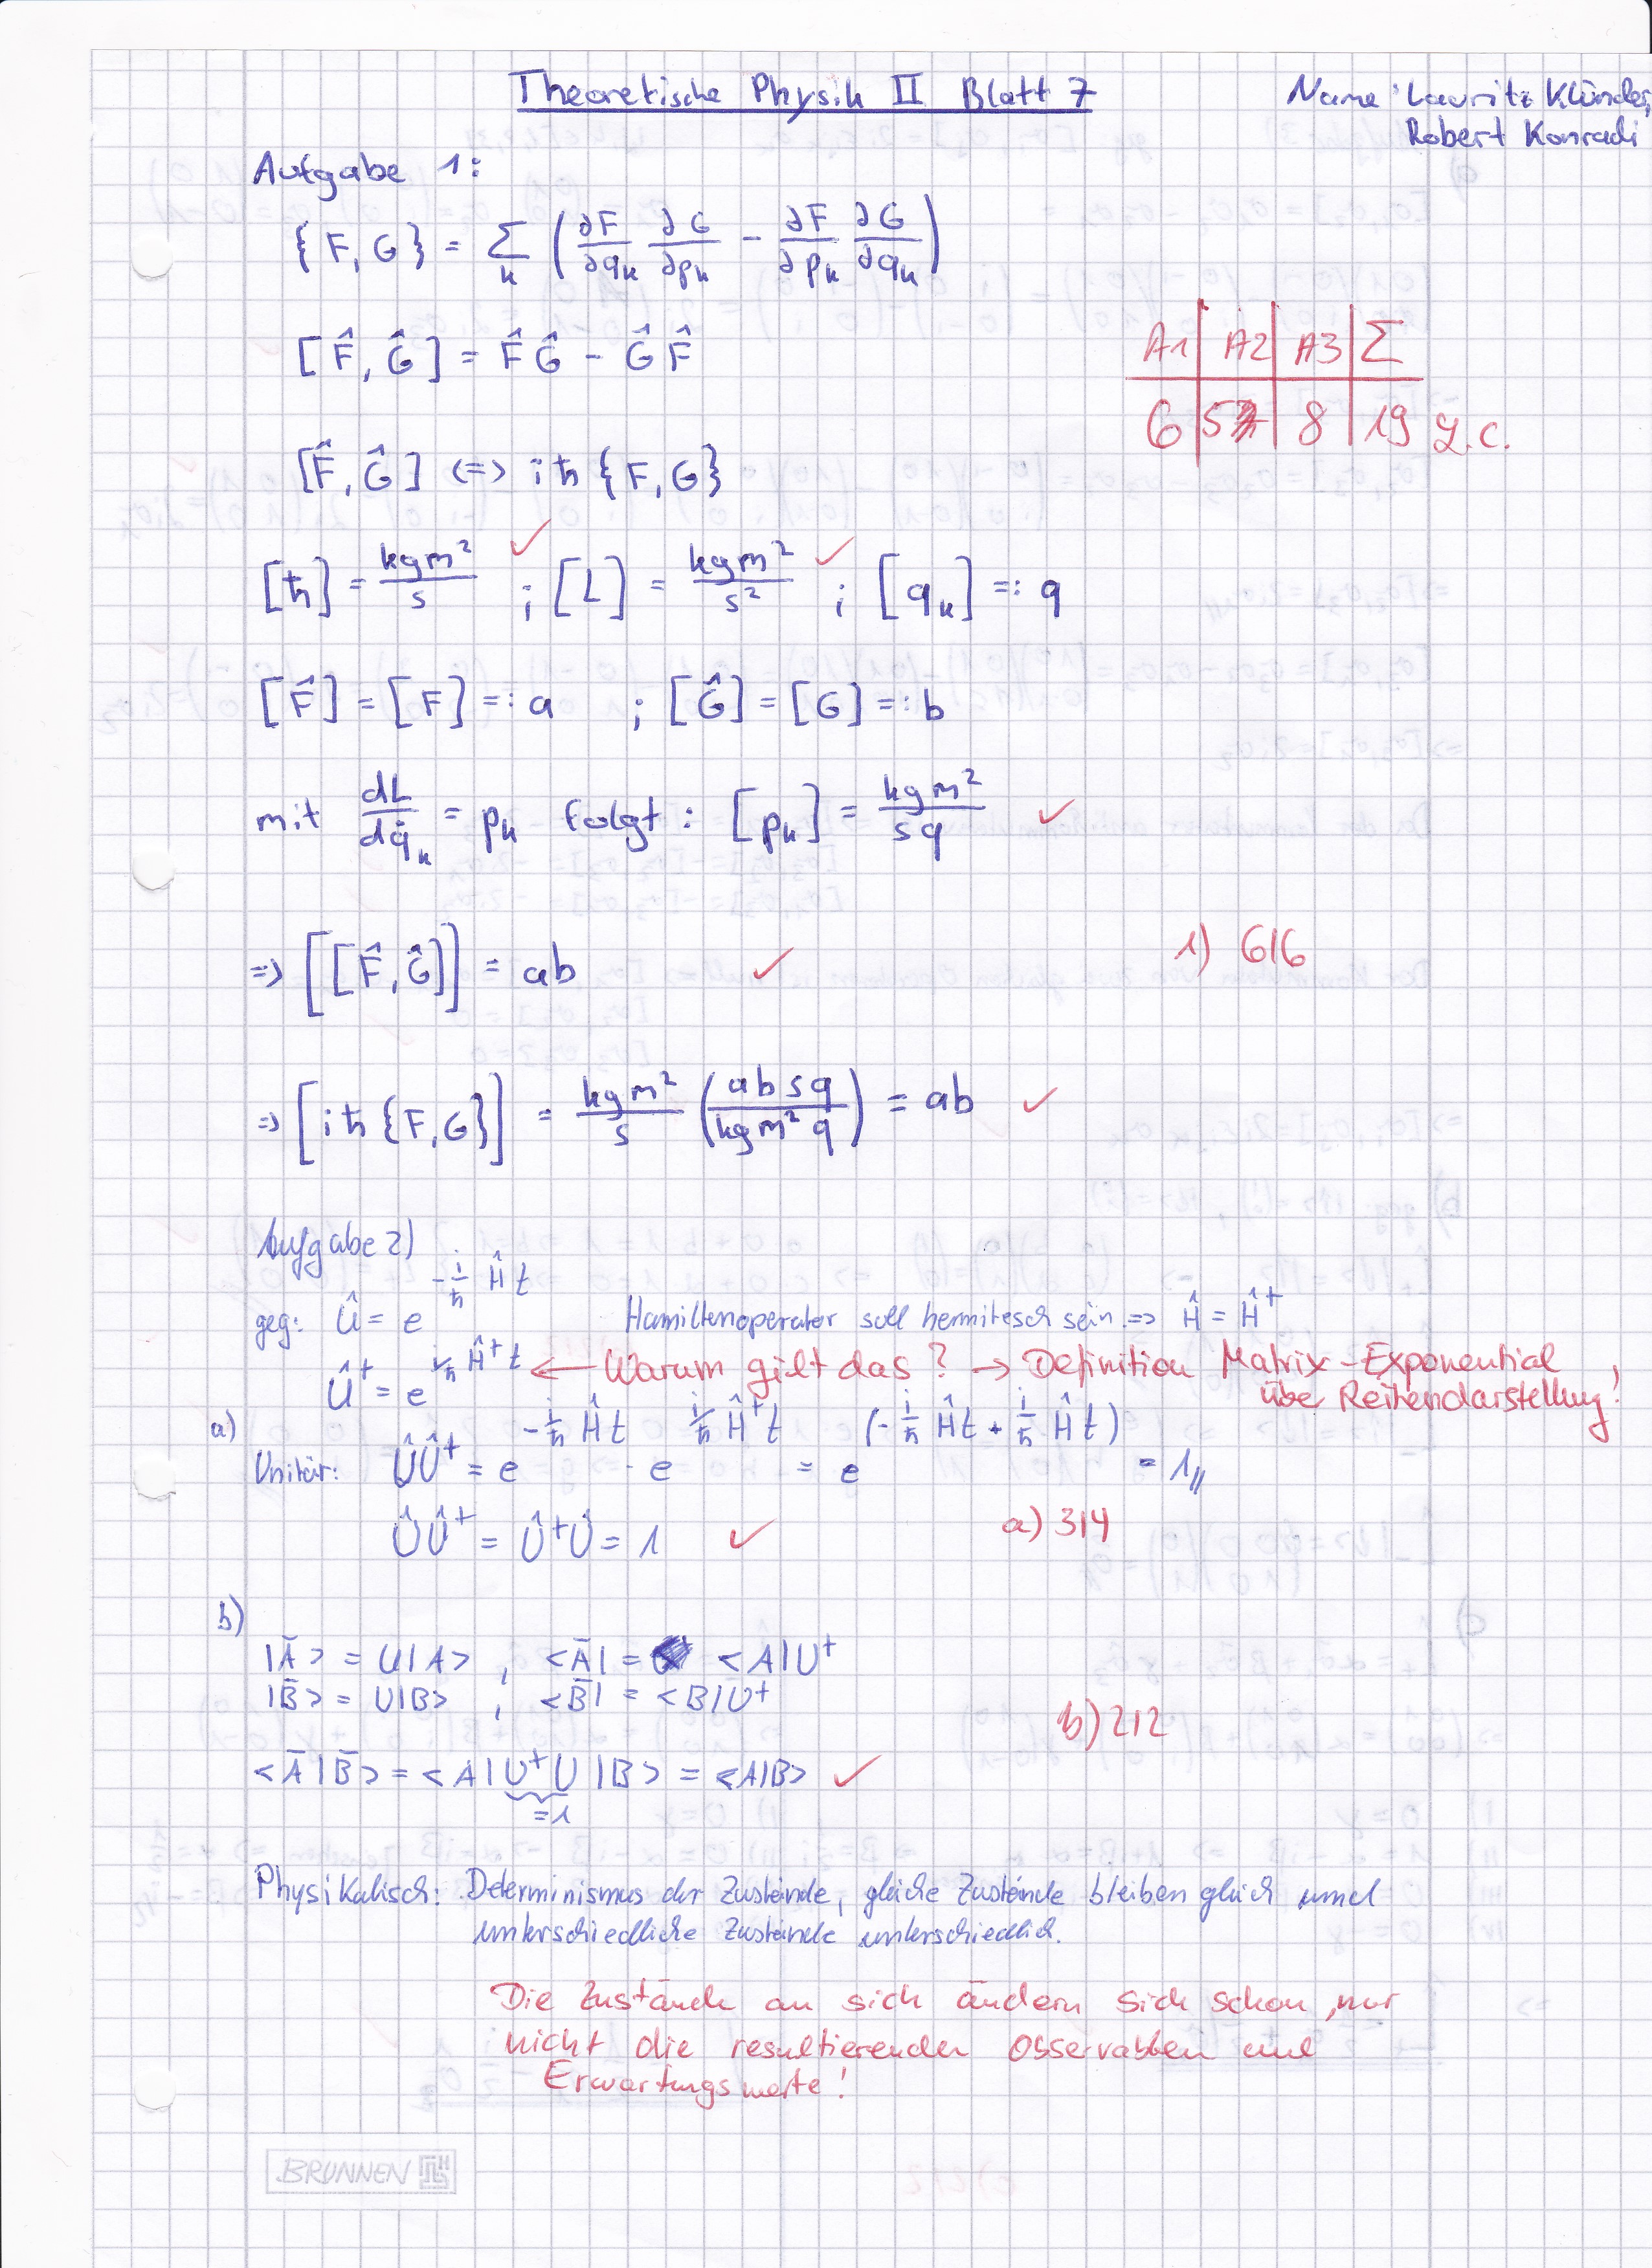 Theoretische Physik II Blatt 7
Name: Lauritz Klünder,
Robert Konradi
Aufgabe 1:
{F, G} = Σ_k (∂F/∂q_k ∂G/∂p_k − ∂F/∂p_k ∂G/∂q_k)
[F̂, Ĝ] = F̂Ĝ − ĜF̂
A1 | A2 | A3 | Σ
6 | 5 | 8 | 19 y.c.
[F̂, Ĝ] <=> iħ{F, G}
[ħ] = kgm²/s ✓ ; [L] = kgm²/s² ✓ ; [q_k] =: q
[F̂] = [F] =: a ; [Ĝ] = [G] =: b
mit dL/dq̇_k = p_k folgt: [p_k] = kgm²/sq ✓
=> [[F̂, Ĝ]] = ab ✓
1) 6/6
=> [iħ{F, G}] = kgm²/s (absq/kgm²q) = ab ✓
Aufgabe 2)
geg: Û = e^(-i/ħ Ĥt) Hamiltonoperator soll hermitesch sein => Ĥ = Ĥ†
Û† = e^(i/ħ Ĥ†t) ← Warum gilt das? → Definition Matrix-Exponential
über Reihendarstellung!
a)
Unitär: ÛÛ† = e^(-i/ħ Ĥt) · e^(i/ħ Ĥ†t) = e^(-i/ħ Ĥt + i/ħ Ĥt) = 1//
ÛÛ† = Û†Û = 1 ✓
a) 3/4
b)
|Ā> = U|A> , <Ā| = <A|U†
|B̄> = U|B> , <B̄| = <B|U†
b) 2/2
<Ā|B̄> = <A|U†U|B> = <A|B> ✓
=1
Physikalisch: Determinismus der Zustände, gleiche Zustände bleiben gleich und
unterschiedliche Zustände unterschiedlich.
Die Zustände an sich ändern sich schon, nur
nicht die resultierenden Observablen und
Erwartungswerte!
BRUNNEN